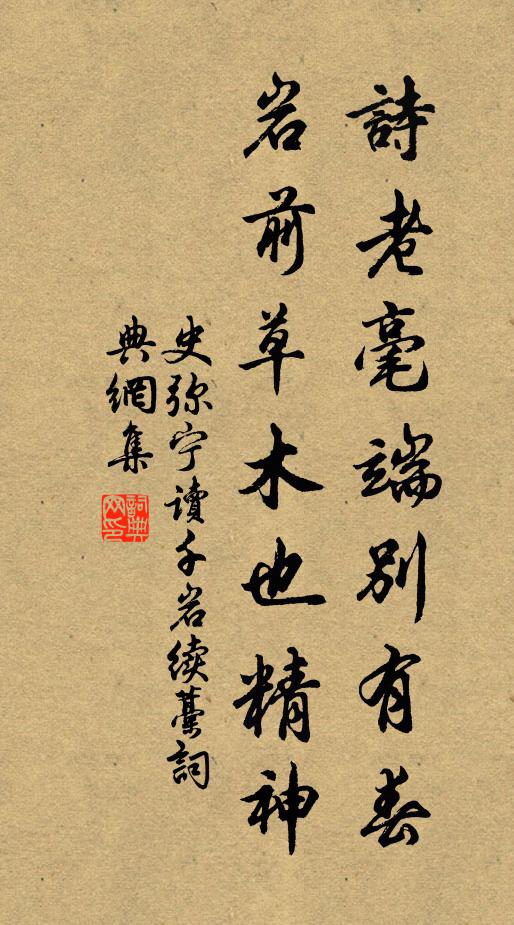 詩老毫端別有春
岩前草木也精神
史弥宁讀千岩续藁詞
典網集
詞典网印